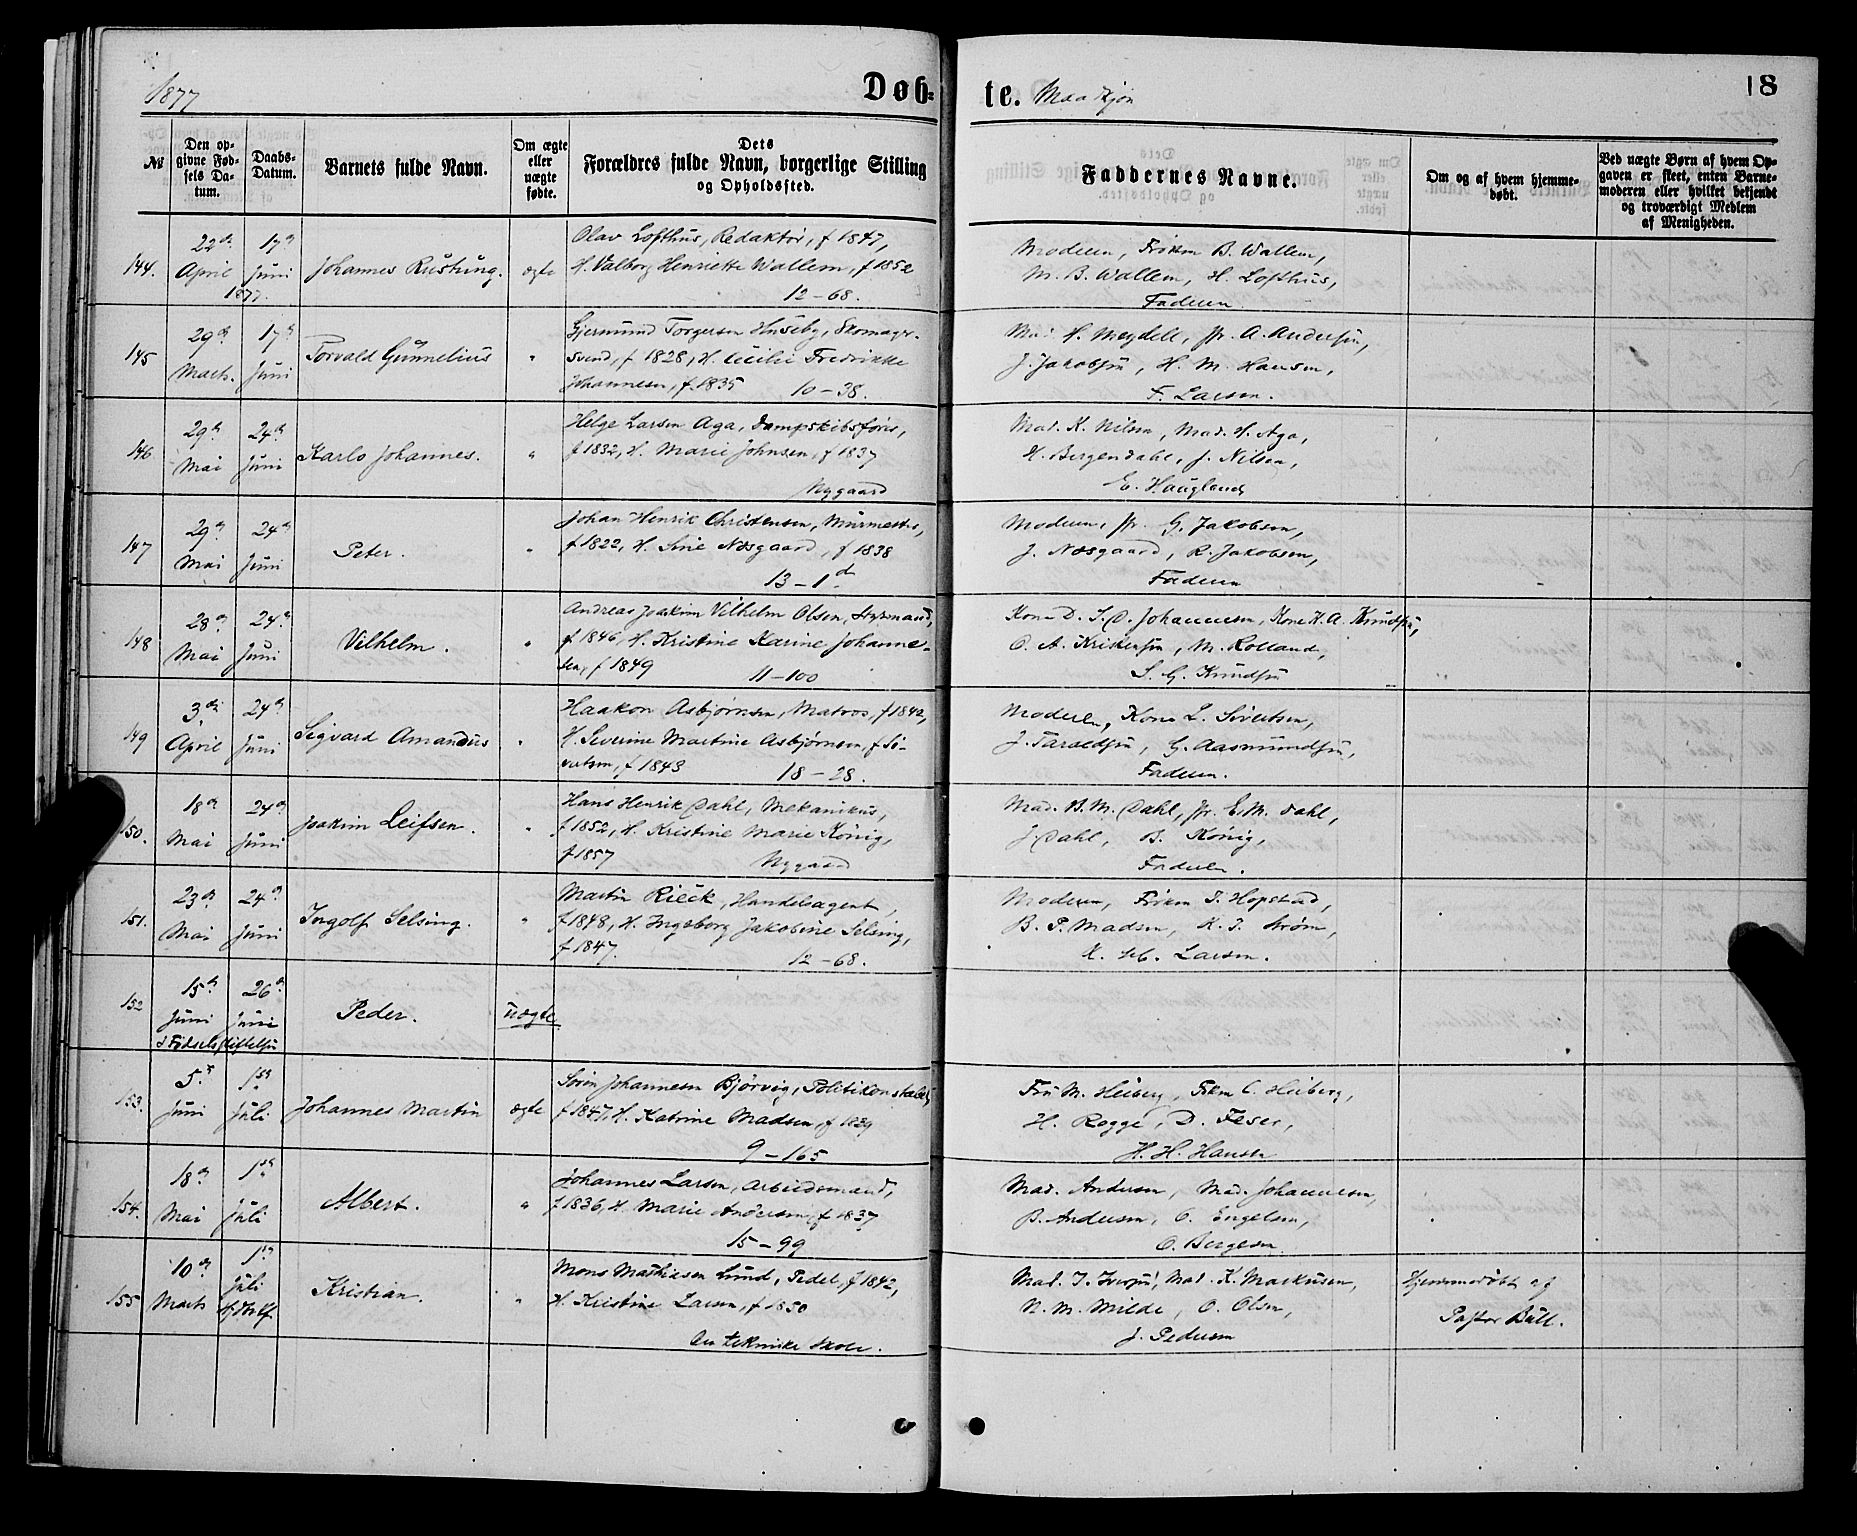 1877
Døb=
te. Mandkjøn
18
№
Den op-
givne Fød-
sels Da-
tum.
Daabs-
Datum.
Barnets fulde Navn.
Om ægte
eller
uægte
fødte.
Dets
Forældres fulde Navn, borgerlige Stilling
og Opholdssted.
Faddernes Navne.
Om og af hvem hjemme-
døbt.
Ved uægte Børn af hvem Op-
gaven er skeet, enten Barne-
moderen eller hvilket bekjendt
og troværdigt Medlem
af Menigheden.
144.
22de April 1877.
17de Juni
Johannes Rustung.
ægte
Olav Lofthus, Redaktør, f 1847,
H. Valborg Henriette Wallem, f 1852
12-68.
Moderen, Frøken B. Wallem,
M. B. Wallem, H. Lofthus,
Faderen.
145
29de Marts.
17de Juni
Torvald Gunnelius
"
Gjermund Torgersen Huseby, Skomager-
svend, f 1828, H. Cecilie Fredrikke
Johannesen, f. 1835 10-38.
Mad. H. Meydell, Jfr. A. Andersen,
J. Jakobsen, H. M. Hansen,
F. Larsen.
146
29de Mai
24de Juni
Karlo Johannes.
"
Helge Larsen Aga, Dampskibsfører,
f 1832, H. Marie Johnsen, f 1837
Nygaard
Mad. K. Nilsen, Mad. H. Aga,
H. Bergendahl, J. Nilsen,
E. Haugland
147
29de Mai
24de Juni
Peter.
"
Johan Henrik Christensen, Murmester,
f 1822, H. Sine Næsgaard, f 1838
13-1d
Moderen, Jfr. G. Jakobsen,
J. Næsgaard, R. Jakobsen,
Faderen
148
28de Mai
24de Juni
Vilhelm.
"
Andreas Joakim Vilhelm Olsen, Styrmand,
f 1846, H. Kristine Karine Johanne-
sen, f 1849 11-100
Kone D. S. D. Johannesen, Kone K. A. Knudsen,
O. A. Kristensen, M. Rolland,
S. G. Knudsen
149
3die April
24de Juni
Sigvard Amandus
"
Haakon Asbjørnsen, Matros, f 1842,
H. Severine Martine Asbjørnsen, f Si-
vertsen, f 1843 18-28.
Moderen, Kone L. Sivertsen,
J. Taraldsen, G. Aasmundsen,
Faderen.
150.
18de Mai
24de Juni
Joakim Leifsen.
"
Hans Henrik Dahl, Mekanikus,
f 1852, H. Kristine Marie König,
f 1857 Nygaard
Mad. B. M. Dahl, Jfr. E. M. Dahl,
J. Dahl, B. König,
Faderen.
151.
23de Mai
24de Juni
Ingolf Selsing.
"
Martin Rieck, Handelsagent,
f 1848, H. Ingeborg Jakobine Selsing,
f 1847. 12-68.
Moderen, Frøken I. Hopstad,
B. P. Madsen, K. I. Strøm,
K. Larsen.
152
15de Juni
26de Juni
Fødselsstiftelsen
Peder.
uægte
153.
5te Juni
1ste Juli.
Johannes Martin
ægte
Søren Johannesen Bjørvig, Politikonstabel,
f 1847, H. Katrine Madsen, f 1839
9-165
Fru M. Heiberg, Frkn C. Heiberg,
H. Rogge, D. Feser,
H. H. Hansen
154.
18de Mai
1ste Juli
Albert.
"
Johannes Larsen, Arbeidsmand,
f 1836, H. Marie Andersen, f 1837
15-99
Mad. Andersen, Mad. Johannesen,
B. Andersen, O. Engelsen,
O. Bergesen.
155
10de Marts
1ste Juli
Kristian.
"
Mons Mathiesen Lund, Pedel, f 1842,
H. Kristine Larsen, f 1850
den tekniske Skole.
Mad. I. Iversen, Mad. K. Markusen,
N. M. Milde, O. Olsen,
J. Pedersen
Hjemmedøbt af
Pastor Bull.